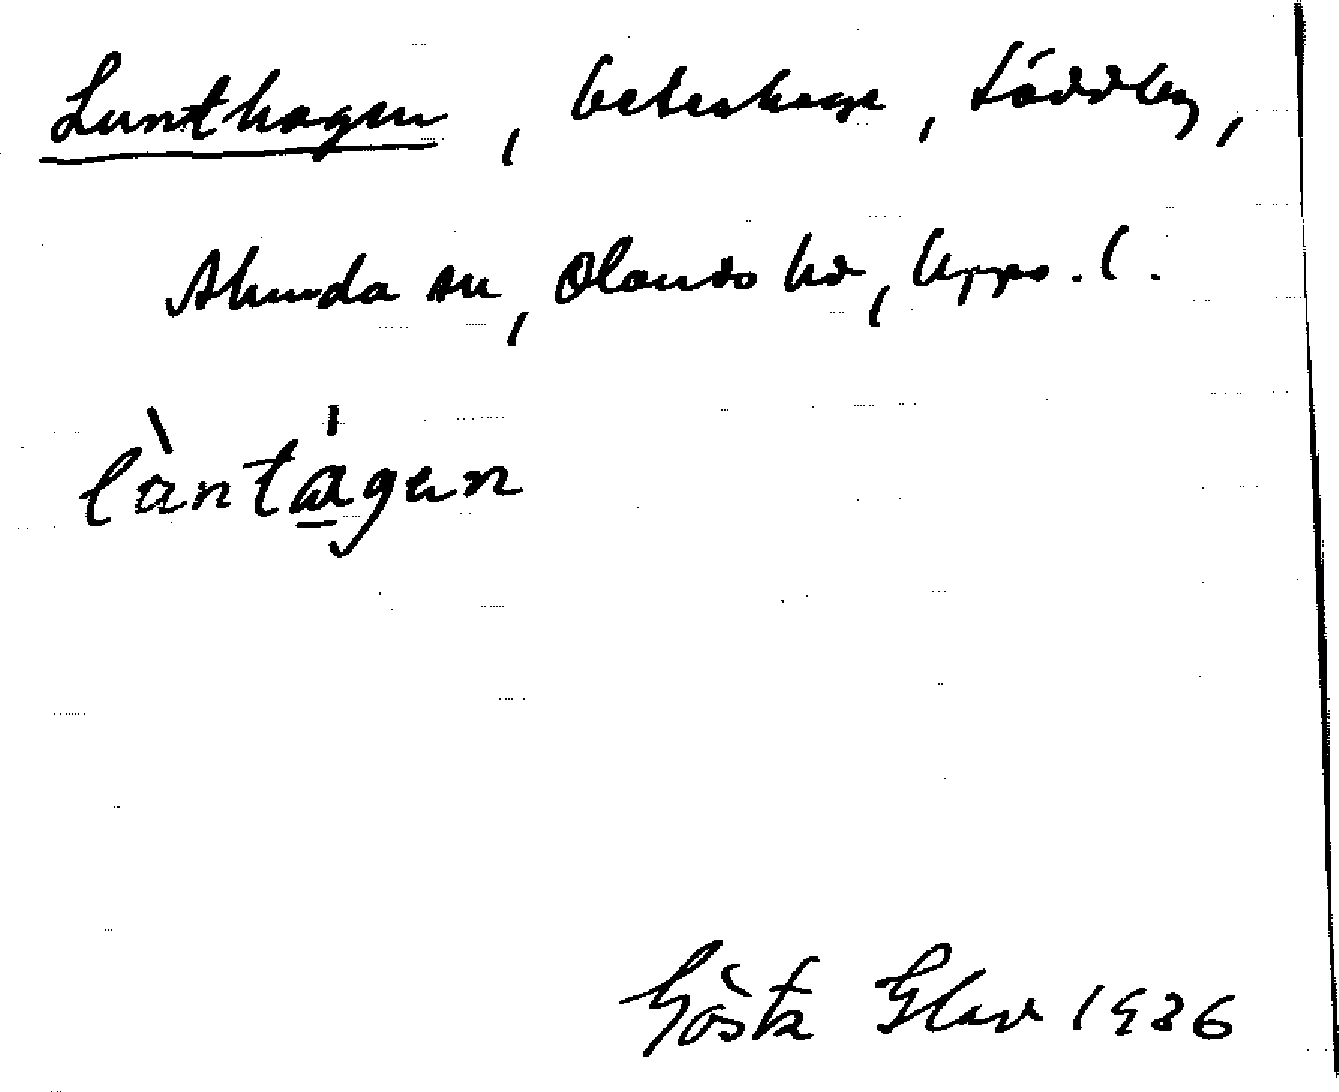 Lunthagen, beteshage, Söddeby,
Alunda sn, Olands hd, Upps. l.
làntágen
Gösta Glav 1936